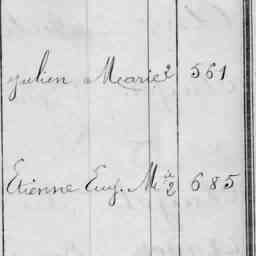 Julien Marie 2 561
Etienne Eug. Mie 2 685